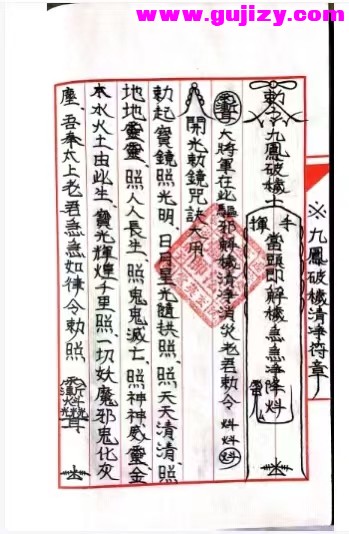 www.gujizy.com
※九鳳破穢清淨符章
勅令九鳳破穢士
手揮
當頭即解穢急急淨降
大將軍在此驅邪解穢清淨消災老君勅令
開光勅鏡咒訣大用
勅起寶鏡照光明、日月星光隨拱照、照天天清清、照
地地靈靈、照人人長生、照鬼鬼滅亡、照神神威靈、金
木水火土由此生、寶光輝煌千里照、一切妖魔邪鬼化灰
塵、吾奉太上老君急急如律令勅照、